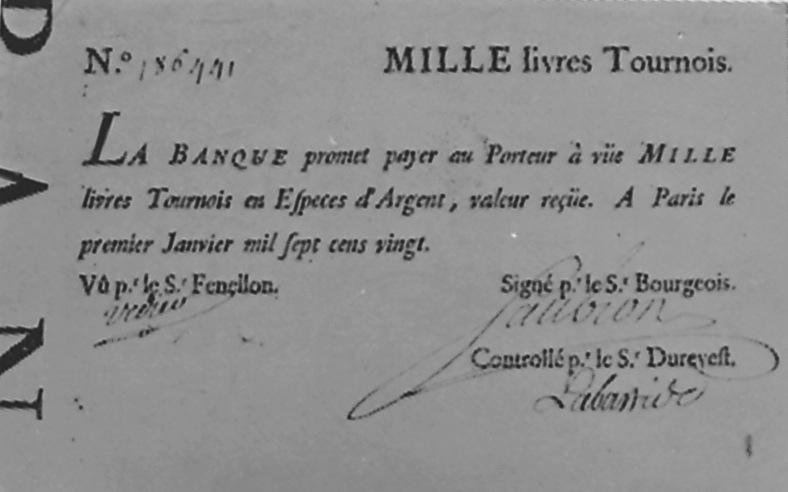 N.º 186441 MILLE livres Tournois.
LA BANQUE promet payer au Porteur à vûe MILLE
livres Tournois en Eſpeces d'Argent, valeur reçûe. A Paris le
premier Janvier mil ſept cens vingt.
Vû p.r le S.r Fenellon. Signé p.r le S.r Bourgeois.
Controllé p.r le S.r Dureveſt.